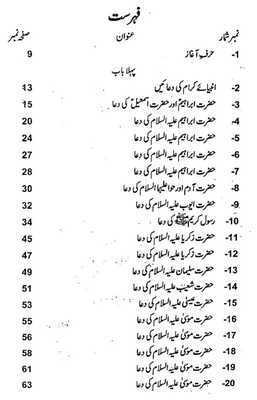 فہرست
نمبر شمار عنوان صفحہ نمبر
1- حرفِ آغاز 9
پہلا باب
2- انبیائے کرام کی دعائیں 13
3- حضرت ابراہیمؑ اور حضرت اسمٰعیلؑ کی دعا 15
4- حضرت ابراہیم علیہ السلام کی دعا 20
5- حضرت ابراہیم علیہ السلام کی دعا 24
6- حضرت ابراہیم علیہ السلام کی دعا 27
7- حضرت ابراہیم علیہ السلام کی دعا 28
8- حضرت آدم اور حوا علیہما السلام کی دعا 30
9- حضرت ایوب علیہ السلام کی دعا 32
10- رسول کریم ﷺ کی دعا 34
11- حضرت زکریا علیہ السلام کی دعا 45
12- حضرت زکریا علیہ السلام کی دعا 47
13- حضرت سلیمان علیہ السلام کی دعا 49
14- حضرت شعیب علیہ السلام کی دعا 51
15- حضرت عیسیٰ علیہ السلام کی دعا 53
16- حضرت موسیٰ علیہ السلام کی دعا 55
17- حضرت موسیٰ علیہ السلام کی دعا 56
18- حضرت موسیٰ علیہ السلام کی دعا 58
19- حضرت موسیٰ علیہ السلام کی دعا 61
20- حضرت موسیٰ علیہ السلام کی دعا 63